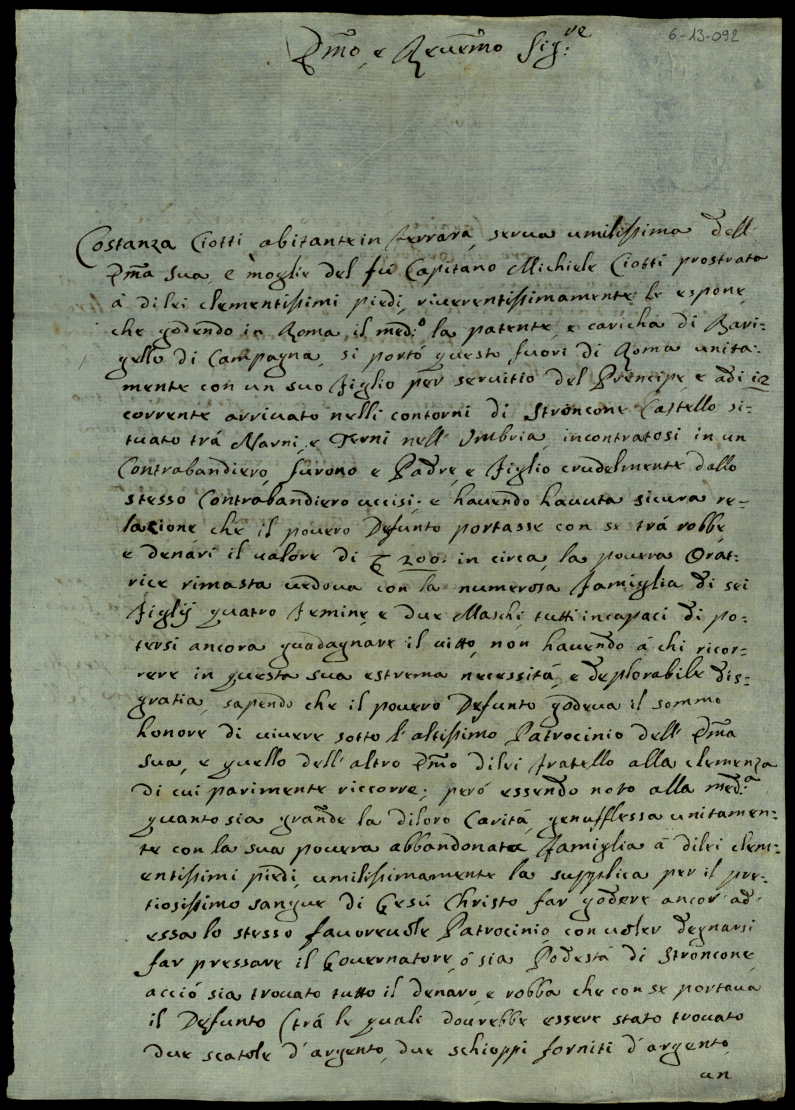 6-13-092
Em̃o, e Reuerẽmo Sig:re
Costanza Ciotti abitante in Ferrara, serua umilissima dell'
Em̃a Sua e moglie del fù Capitano Michiele Ciotti prostrata
à dilei clementissimi piedi, riuerentissimamente le espone,
che godendo in Roma il med:o la patente, e caricha di Bari-
gello di Campagna, si portò questo fuori di Roma unita-
mente con un suo figlio per seruitio del Prencipe e adi 12
corrente arriuato nelli contorni di Stroncone Castello si-
tuato trà Narni, e Terni nell' Umbria incontratosi in un
Contrabandiero, furono e Padre, e figlio crudelmente dallo
stesso Contrabandiero uccisi; e hauendo hauuta sicura re-
lazione che il pouero Defunto portasse con se trà robbe,
e denari il ualore di 200: in circa, la pouera Orat-
rice rimasta uedoua con la numerosa famiglia di sei
figlij quatro femine, e due Maschi tutti incapaci di po-
tersi ancora guadagnare il uitto, non hauendo à chi ricor-
rere in questa sua estrema necessità, e deplorabile dis-
gratia, sapendo che il pouero Defunto godeua il sommo
honore di uiuere sotto l'altissimo Patrocinio dell' Em̃a
Sua, e quello dell' altro Em̃o dilei fratello alla clemenza
di cui parimente riccorre; però essendo noto alla med:a
quanto sia grande la diloro Carità, genufflessa unitamen-
te con la sua pouera abbandonata famiglia à dilei clem-
entissimi piedi, umilissimamente la supplica per il pre-
tiosissimo sangue di Gesù Christo far godere ancor ad
essa lo stesso fauoreuole Patrocinio, con uoler degnarsi
far pressare il Gouernatore, ò sia Podestà di Stroncone,
acciò sia trouato tutto il denaro, e robba che con se portaua
il Defunto (trà le quali dourebbe essere stato trouato
due scatole d'argento, due schioppi forniti d'argento,
un